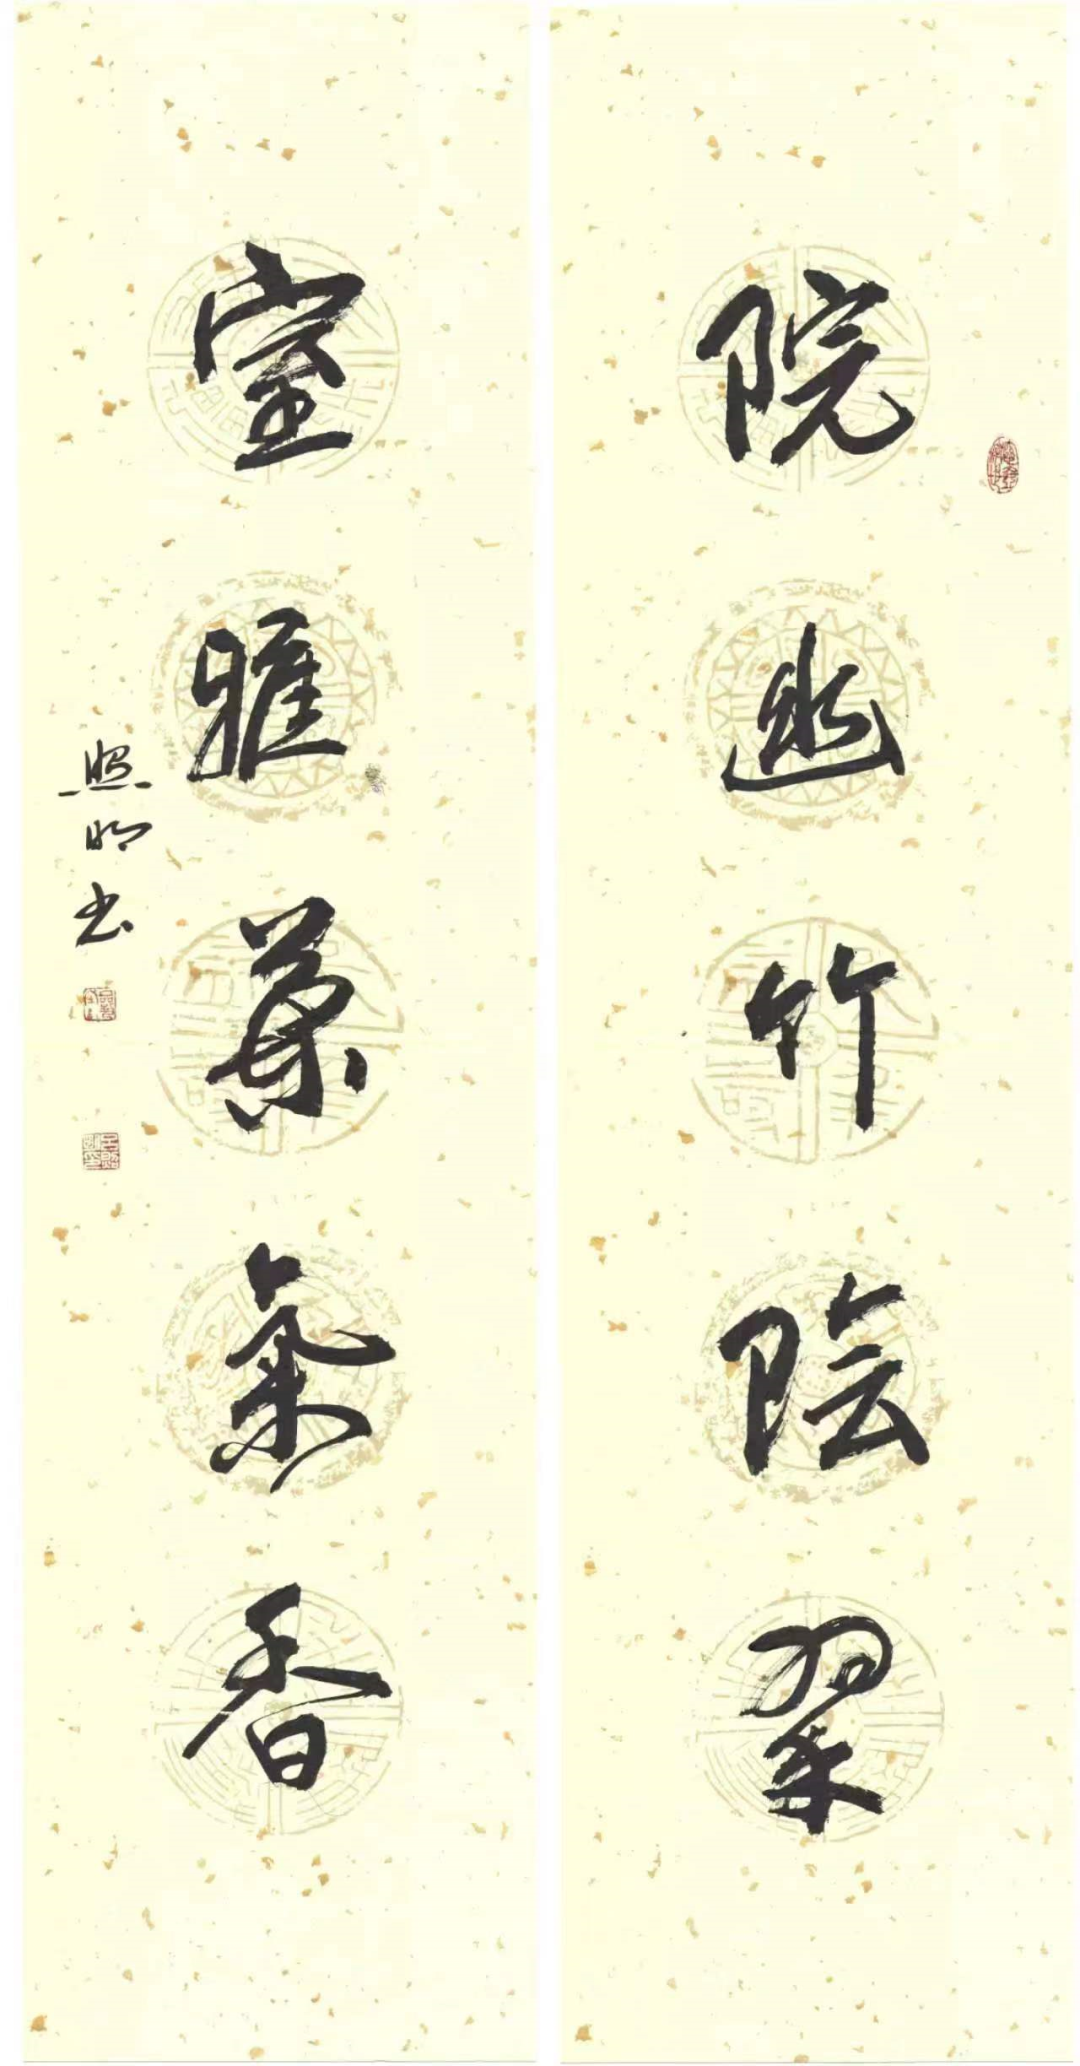 院幽竹陰翠
室雅蘭氣香
照明书